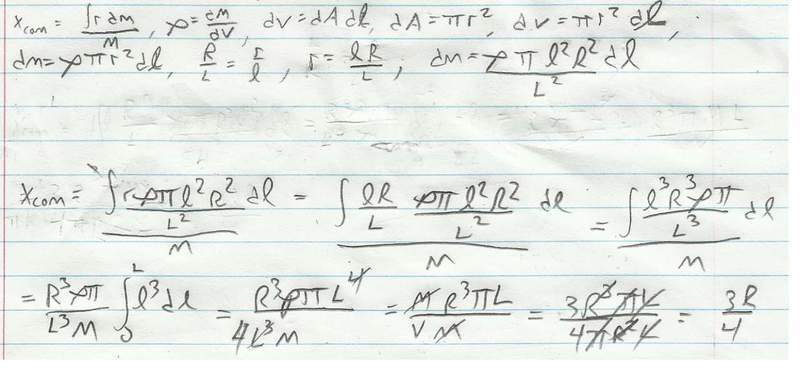 x_com = ∫r dm / M , ρ = dm/dV , dV = dA dl, dA = πr², dV = πr² dl, .
dm = ρπr² dl, R/L = r/l , r = lR/L , dm = ρπ l²R²/L² dl
x_com = ∫ r ρπl²R²/L² dl / M = ∫ lR/L ρπl²R²/L² dl / M = ∫ l³R³ρπ/L³ dl / M
= R³ρπ/L³M ∫₀ᴸ l³ dl = R³ρπL⁴/4L³M = M R³πL/V M = 3R³πL/4πR²L = 3R/4